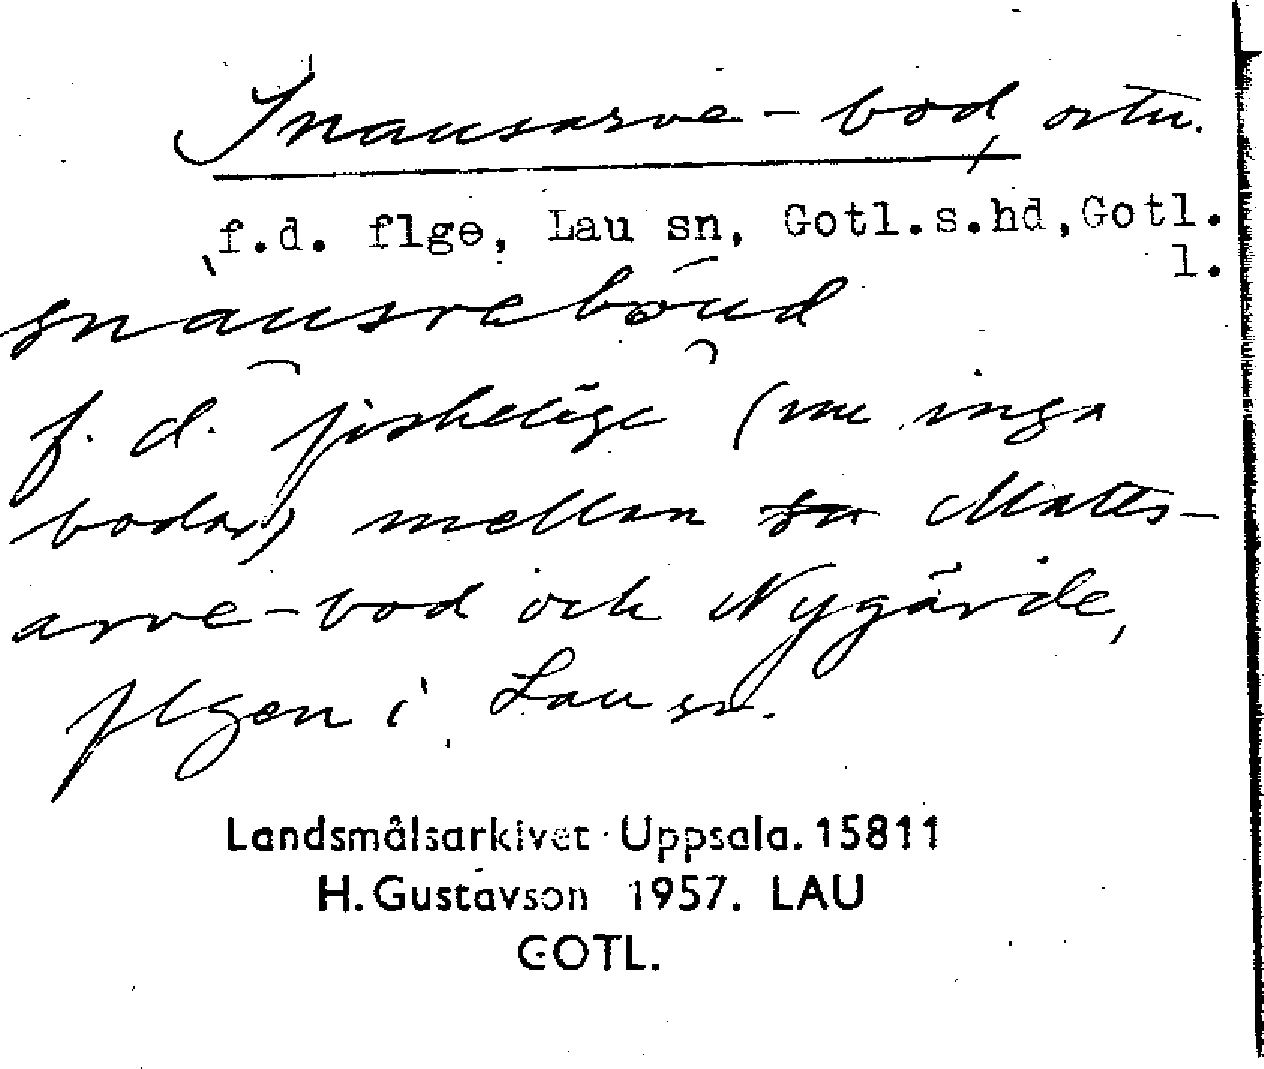 Snausarve-bod, ortn.
f.d. flge, Lau sn, Gotl.s.hd,Gotl.
l.
snausrebōud
f. d. fiskeläge (nu inga
bodar) mellan Matts-
arve-bod och Nygärde,
flgen i Lau sn.
Landsmålsarkivet Uppsala. 15811
H. Gustavson 1957. LAU
GOTL.